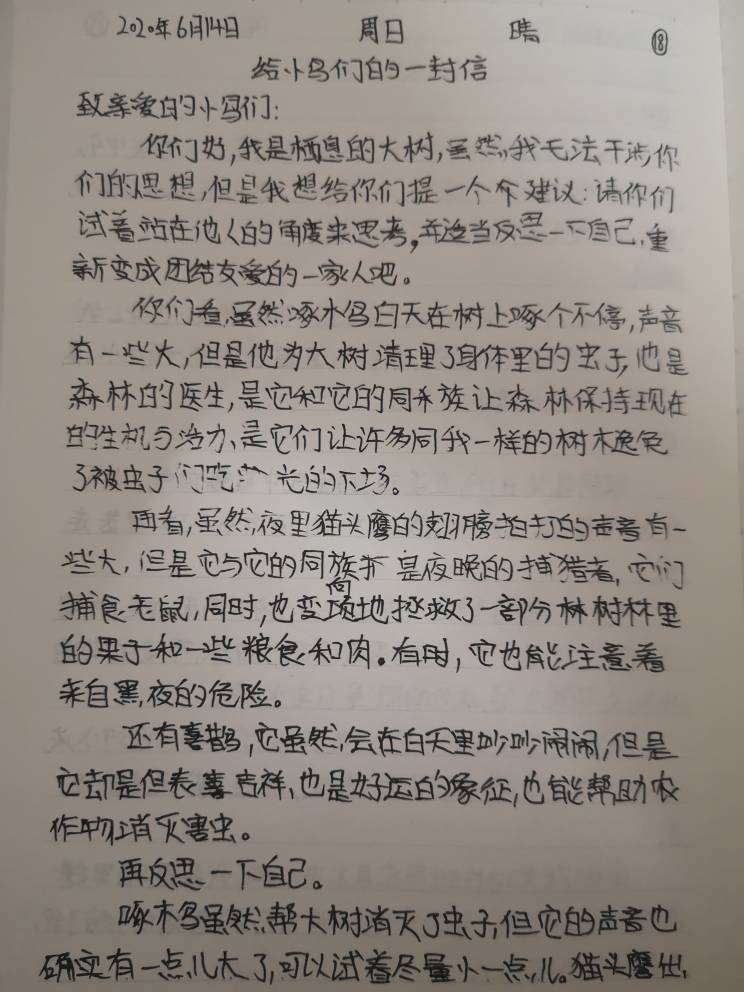 2020年6月14日 周日 晴 ⑱
给小鸟们的一封信
致亲爱的小鸟们:
你们好,我是栖息的大树,虽然,我无法干涉你
们的思想,但是我想给你们提一个个建议:请你们
试着站在他人的角度来思考,并适当反思一下自己,重
新变成团结友爱的一家人吧。
你们看,虽然啄木鸟白天在树上啄个不停,声音
有一些大,但是他为大树清理了身体里的虫子,也是
森林的医生,是它和它的同族让森林保持现在
的生机与活力、是它们让许多同我一样的树木逸免
了被虫子们吃光的下场。
再看,虽然夜里猫头鹰的翅膀拍打的声音有一
些大,但是它与它的同族 是夜晚的捕猎者,它们
捕食老鼠,同时,也变向地拯救了一部分林树林里
的果子和一些粮食和肉。有时,它也能注意着
来自黑夜的危险。
还有喜鹊,它虽然会在白天里吵吵闹闹,但是
它却是但表喜吉祥,也是好运的象征,也能帮助农
作物消灭害虫。
再反思一下自己。
啄木鸟虽然帮大树消灭了虫子,但它的声音也
确实有一点儿大了,可以试着尽量小一点儿。猫头鹰出,